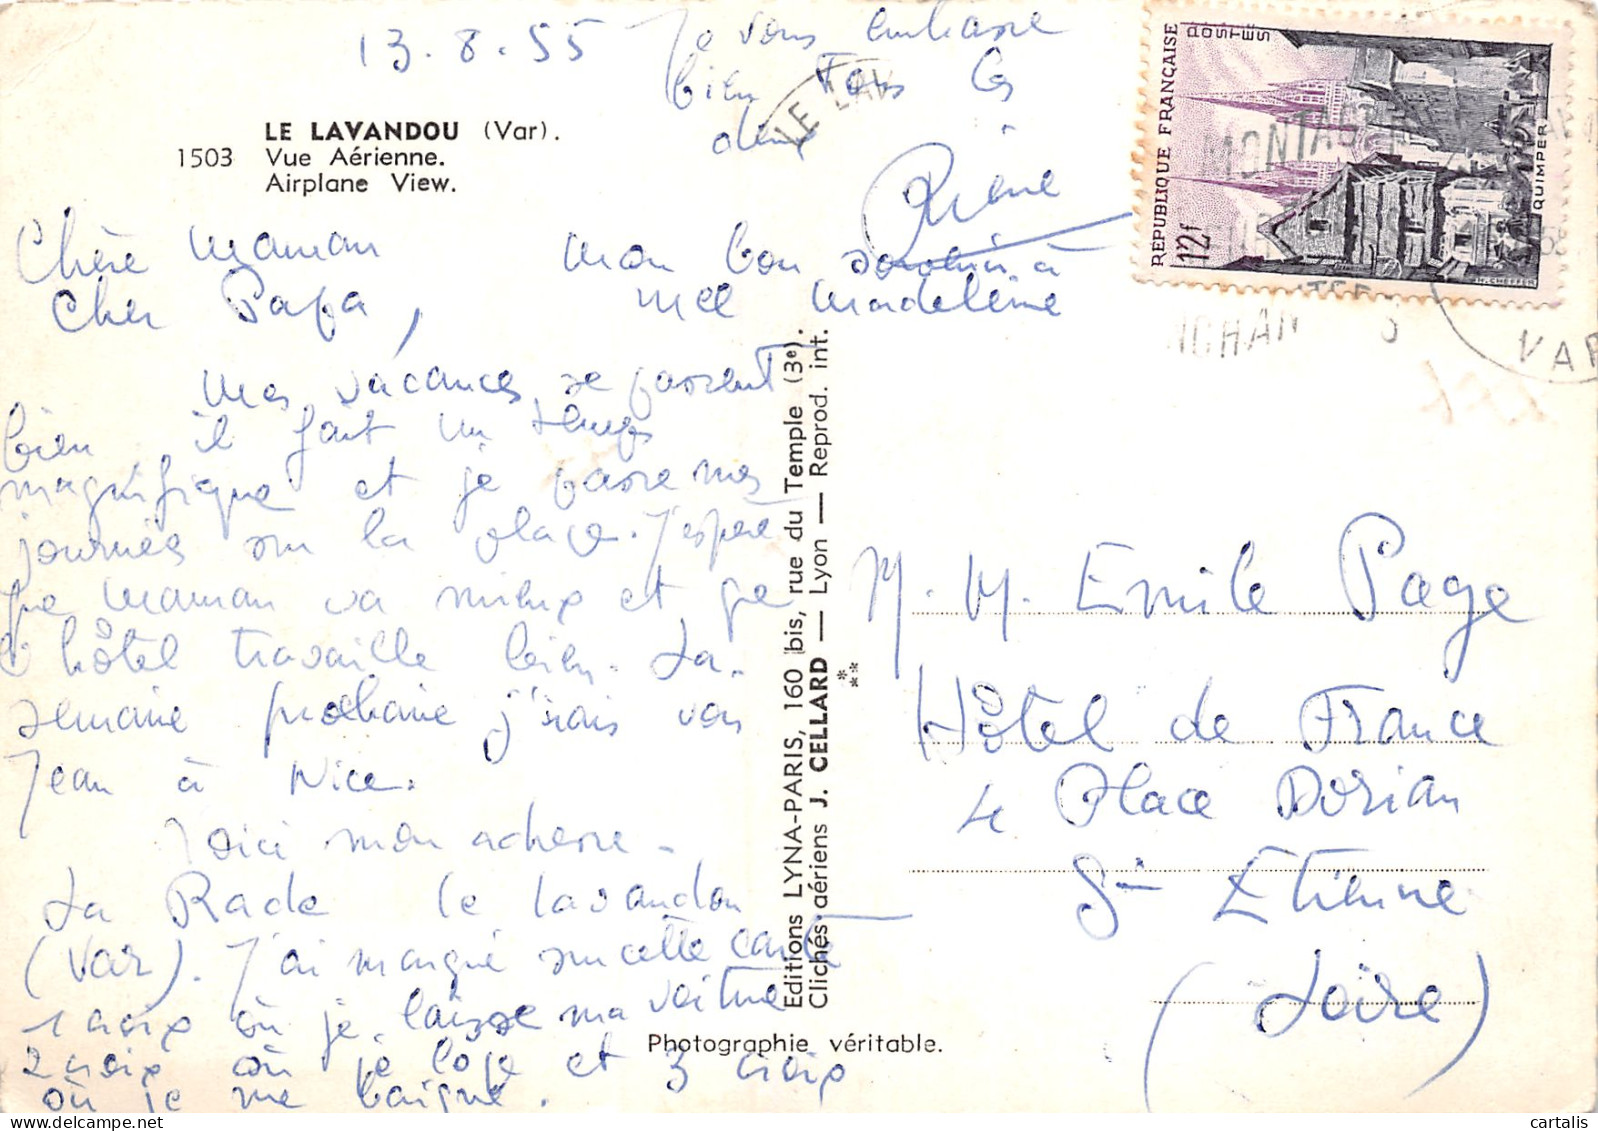 13.8.55
Je vous embrasse
bien Tous les
deux
LE LAV
LE LAVANDOU (Var).
1503 Vue Aérienne.
Airplane View.
Chère Maman
Cher Papa,
mon bon souvenir à
Mel Madeleine
Mes vacances se passent
bien il fait un temps
magnifique et je passe mes
journées sur la place. J'espère
que Maman va mieux et que
l'hôtel travaille bien. La
semaine prochaine j'irais voir
Jean à Nice.
Voici mon adresse -
La Rade le lavandou
(Var). J'ai marqué sur cette carte
1 croix où je laisse ma voiture
2 croix où je loge et 3 croix
où je me baigne.
Editions LYNA-PARIS, 160 bis, rue du Temple (3e).
Clichés aériens J. CELLARD — Lyon — Reprod. int.
Photographie véritable.
REPUBLIQUE FRANÇAISE
POSTES
12f
QUIMPER
H. CHEFFER
MONTAG
VAR
M. M. Emile Page
Hôtel de France
4 Place Dorian
St Etienne
(Loire)
cartalis